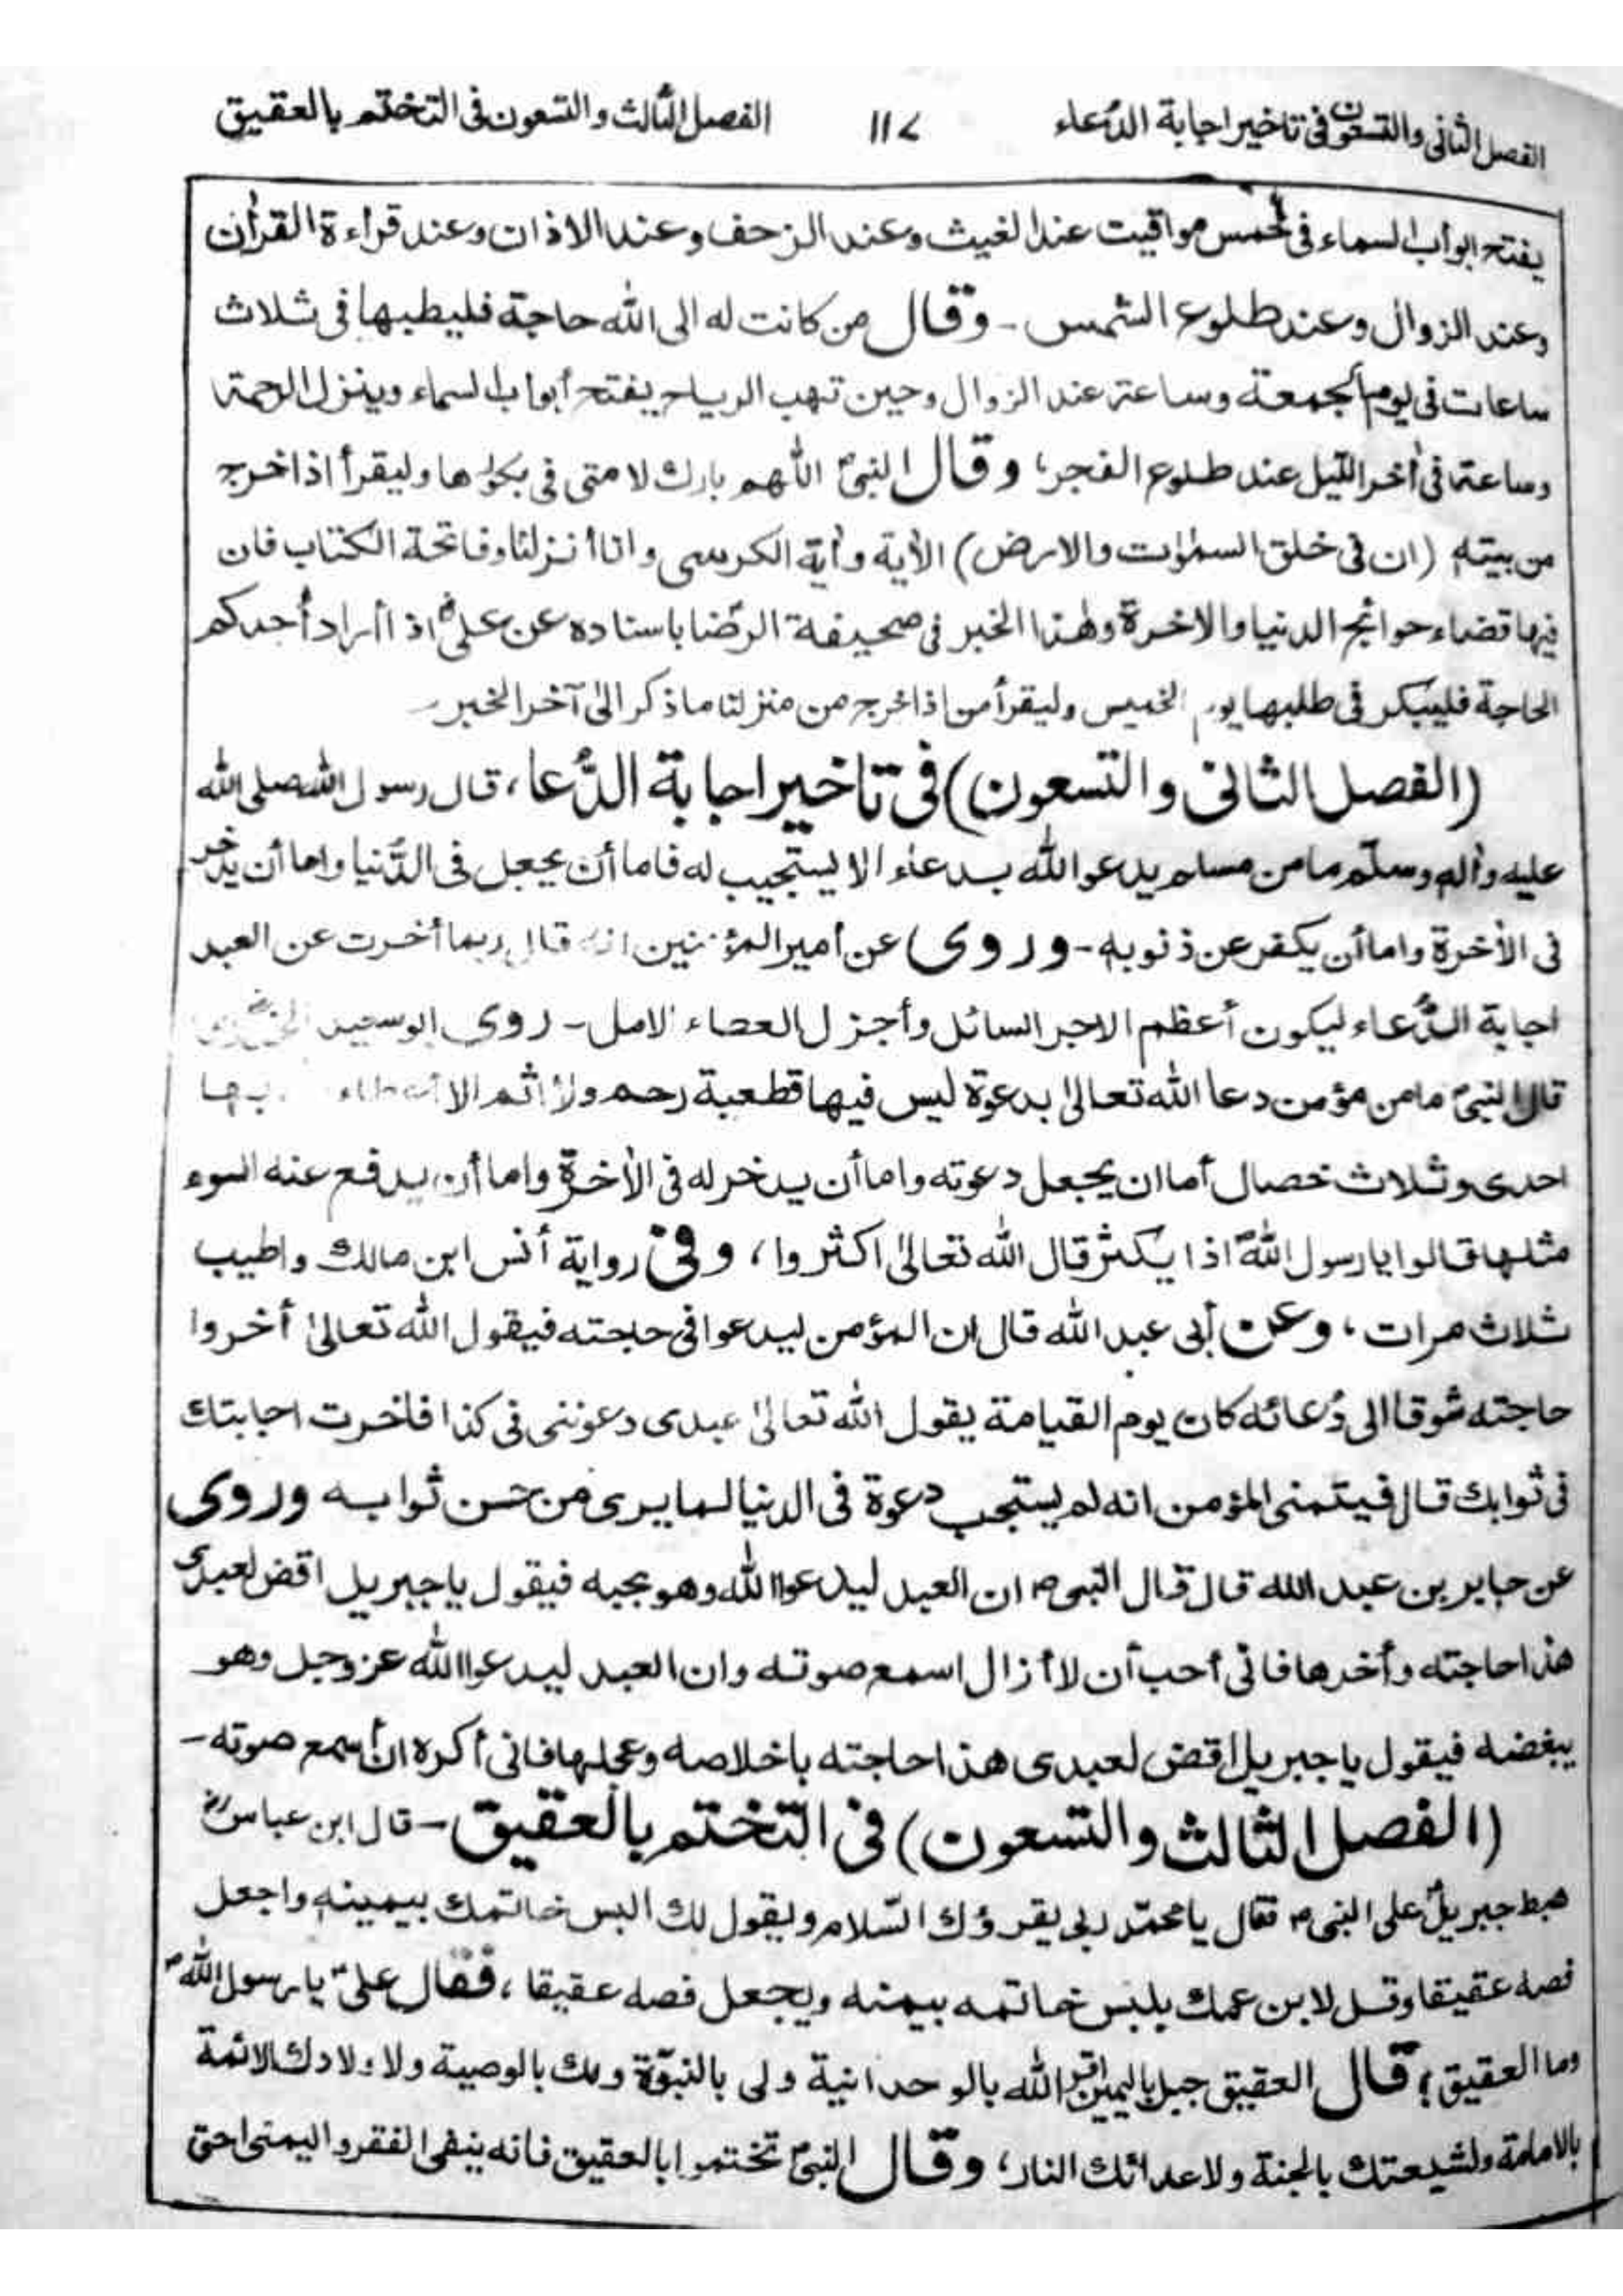 الفصل الثانى والتسعون فى تاخير اجابة الدُعاء ١١٧ الفصل الثالث والتسعون فى التختم بالعقيق
يفتح ابواب السماء فى خمس مواقيت عند الغيث وعند الزحف وعند الاذان وعند قراءة القرأن
وعند الزوال وعند طلوع الشمس - وقال من كانت له الى الله حاجة فليطبها فى ثلاث
ساعات فى يوم الجمعة وساعة عند الزوال وحين تهب الرياح يفتح أبواب السماء وينزل الرحمة
وساعة فى أخر الليل عند طلوع الفجر، وقال النبىؐ اللهم بارك لامتى فى بكورها وليقرأ اذا خرج
من بيته (ان فى خلق السمٰوات والارض) الأية وأية الكرسى وانا أنزلنا وفاتحة الكتاب فان
فيها قضاء حوائج الدنيا والاخرة وهٰذا الخبر فى صحيفة الرضا باسناده عن علىؑ اذا أراد أحدكم
الحاجة فليبكر فى طلبها يوم الخميس وليقرأ من اذا خرج من منزلنا ما ذكر الىٰ آخر الخبر -
(الفصل الثانى والتسعون) فى تاخير اجابة الدُّعا، قال رسول الله صلى الله
عليه وأله وسلّم ما من مسلم يدعو الله بدعاء الا يستجيب له فاما أن يجعل فى الدُّنيا واما أن يدخر
فى الأخرة واما أن يكفر عن ذنوبه - وروى عن أمير المؤمنين انه قال ربما أخرت عن العبد
اجابة الدُّعاء ليكون أعظم الاجر السائل وأجزل العطاء الامل - روى ابو سعيد الخدرى
قال النبىؐ ما من مؤمن دعا الله تعالىٰ بدعوة ليس فيها قطعية رحم ولا اثم الا أعطاء بها
احدى وثلاث خصال أما ان يجعل دعوته واما أن يدخر له فى الأخرة واما أن يدفع عنه السوء
مثلها قالوا يا رسول اللهؐ اذا يكثر قال الله تعالىٰ اكثروا، وفى رواية أنس ابن مالك واطيب
ثلاث مرات، وعن أبى عبد الله قال ان المؤمن ليدعوا فى حاجته فيقول الله تعالىٰ أخروا
حاجته شوقا الى دُعائه كان يوم القيامة يقول الله تعالىٰ عبدى دعوتنى فى كذا فاخرت اجابتك
فى ثوابك قال فيتمنى المؤمن انه لم يستجب دعوة فى الدنيا لما يرى من حسن ثوابه وروى
عن جابر بن عبد الله قال قال النبىؐ ان العبد ليدعوا الله وهو يحبه فيقول يا جبريل اقض لعبدى
هذا حاجته وأخرها فانى أحب أن لا أزال اسمع صوته وان العبد ليدعوا الله عزوجل وهو
يبغضه فيقول يا جبريل اقض لعبدى هذا حاجته باخلاصه وعجلها فانى أكره ان أسمع صوته -
(الفصل الثالث والتسعون) فى التختم بالعقيق - قال ابن عباسؓ
هبط جبريلؑ على النبىؐ فقال يا محمّد ربى يقرؤك السّلام ويقول لك البس خاتمك بيمينه واجعل
فصه عقيقا وقل لابن عمك يلبس خاتمه بيمنه ويجعل فصه عقيقا، فقال علىؑ يا رسول اللهؐ
وما العقيق؟ قال العقيق جبل باليمين اقر الله بالوحدانية ولى بالنبوّة ولك بالوصية ولاولادك الائمة
بالامامة ولشيعتك بالجنة ولاعدائك النار، وقال النبىؐ تختموا بالعقيق فانه ينفى الفقر واليمنى احق